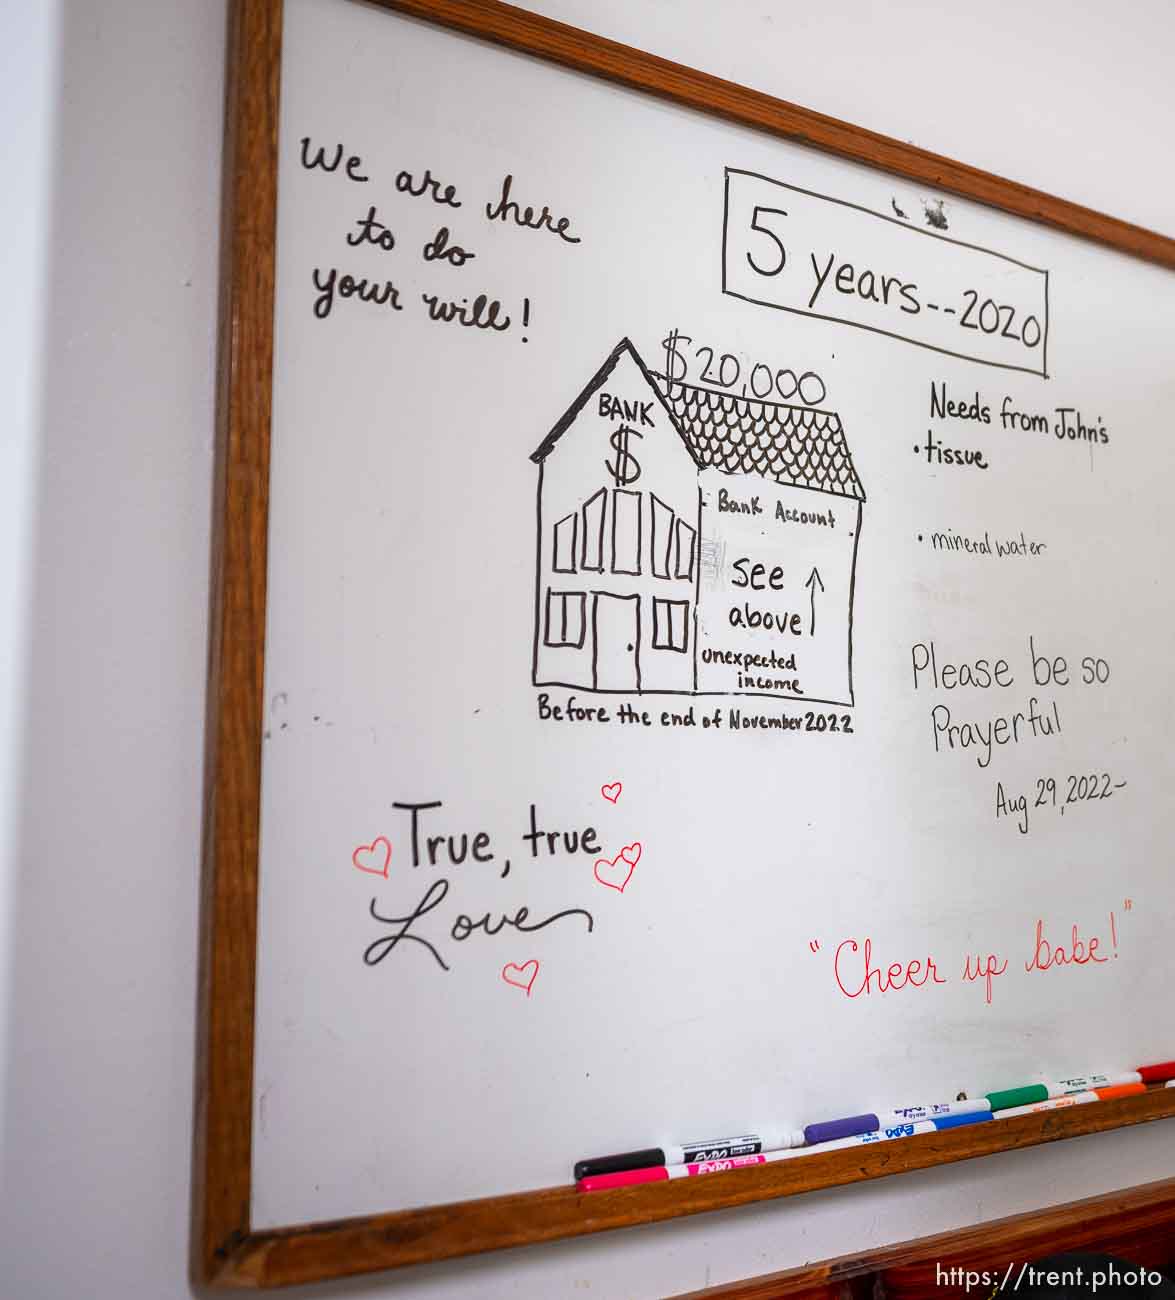 We are here
to do
your will!
5 years--2020
$20,000
BANK
$
Bank Account
see
above
unexpected
income
Before the end of November 2022
Needs from John's
• tissue
• mineral water
Please be so
Prayerful
Aug 29, 2022-
True, true
Love
"Cheer up babe!"
EXPO
EXPO
EXPO
https://trent.photo